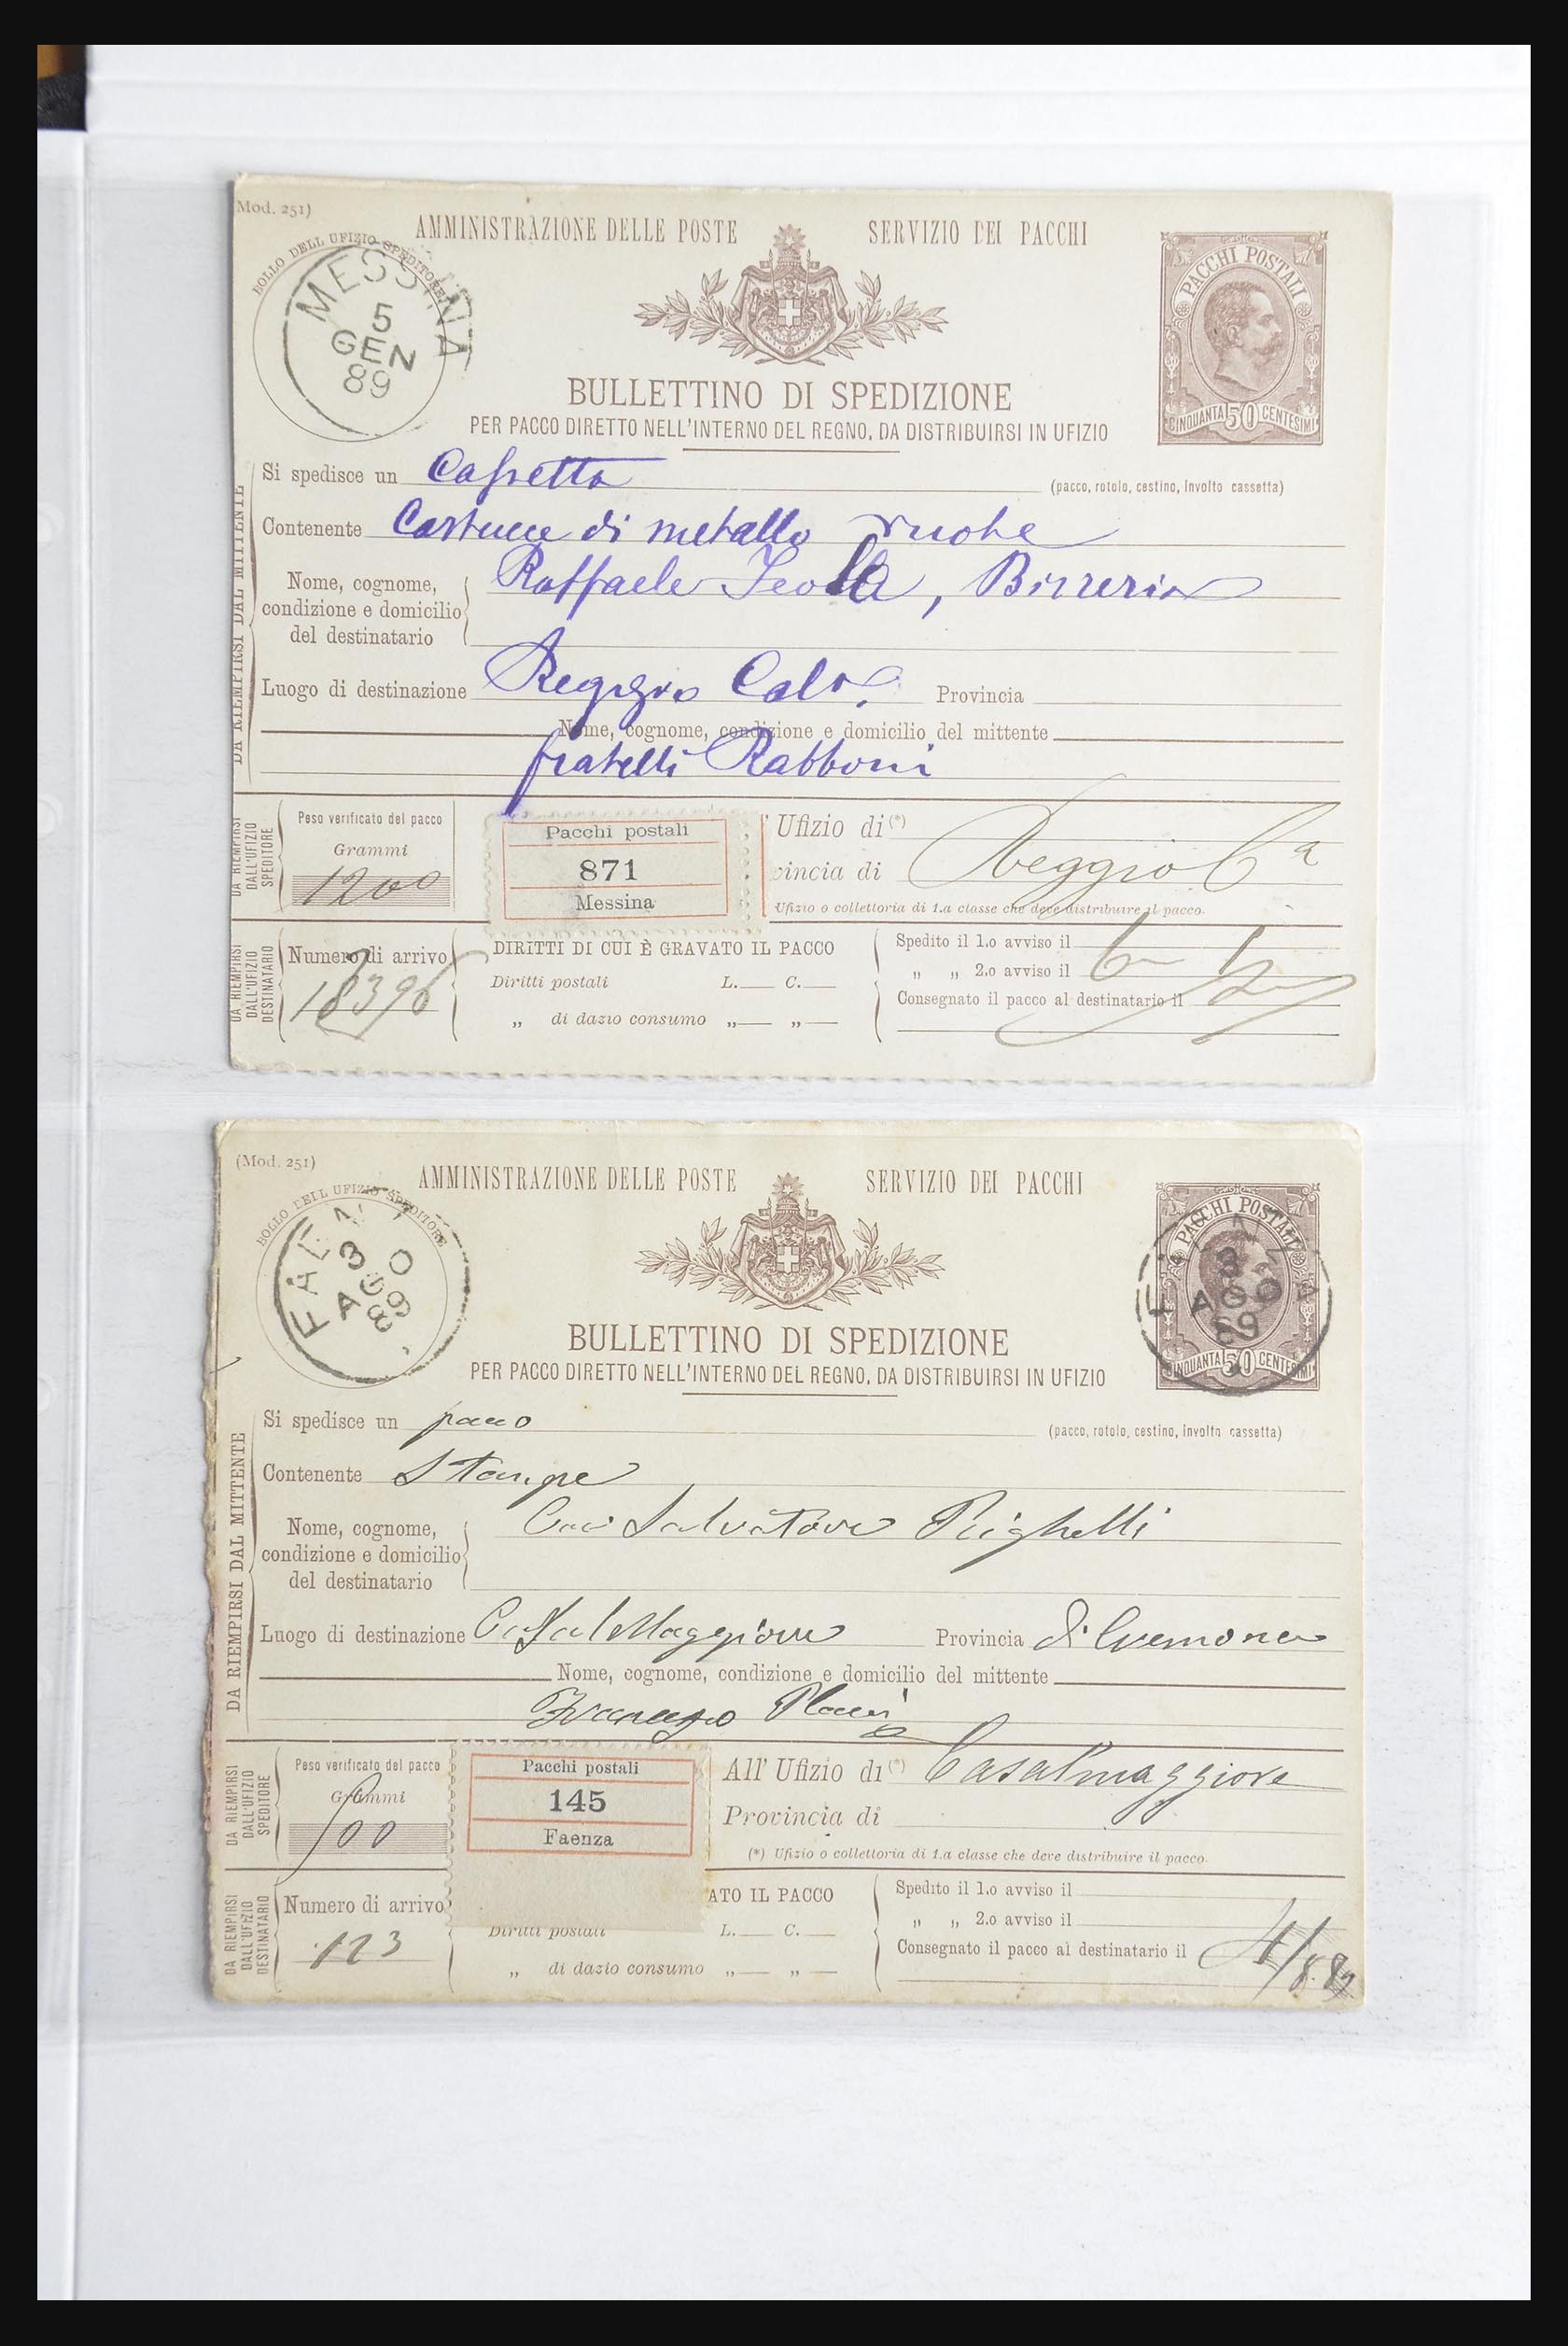 Mod. 251)
AMMINISTRAZIONE DELLE POSTE SERVIZIO DEI PACCHI
BOLLO DELL UFIZIO SPEDITORE
MESSINA
5
GEN
89
PACCHI POSTALI
CINQUANTA 50 CENTESIMI
BULLETTINO DI SPEDIZIONE
PER PACCO DIRETTO NELL'INTERNO DEL REGNO, DA DISTRIBUIRSI IN UFIZIO
DA RIEMPIRSI DAL MITTENTE
Si spedisce un (pacco, rotolo, cestino, involto cassetta)
Contenente di metallo
Nome, cognome,
condizione e domicilio
del destinatario
Raffaele , Birreria
Luogo di destinazione Reggio Cal. Provincia
Nome, cognome, condizione e domicilio del mittente
fratelli Rabboni
DA RIEMPIRSI
DALL'UFIZIO
SPEDITORE
Peso verificato del pacco
Grammi
1200
Pacchi postali
871
Messina
' Ufizio di (*) Reggio Ca
vincia di
Ufizio o collettoria di 1.a classe che deve distribuire il pacco.
DA RIEMPIRSI
DALL'UFIZIO
DESTINATARIO
Numero di arrivo
18396
DIRITTI DI CUI È GRAVATO IL PACCO
Diritti postali L. C.
„ di dazio consumo „ „
Spedito il 1.o avviso il
„ „ 2.o avviso il
Consegnato il pacco al destinatario il
(Mod. 251)
AMMINISTRAZIONE DELLE POSTE SERVIZIO DEI PACCHI
BOLLO DELL UFIZIO SPEDITORE
FAENZA
3
AGO
89
PACCHI POSTALI
CINQUANTA 50 CENTESIMI
FAENZA
3
AGO
89
BULLETTINO DI SPEDIZIONE
PER PACCO DIRETTO NELL'INTERNO DEL REGNO, DA DISTRIBUIRSI IN UFIZIO
DA RIEMPIRSI DAL MITTENTE
Si spedisce un pacco (pacco, rotolo, cestino, involto cassetta)
Contenente Stampe
Nome, cognome,
condizione e domicilio
del destinatario
Salvatore Righelli
Luogo di destinazione CasalMaggiore Provincia di Cremona
Nome, cognome, condizione e domicilio del mittente
DA RIEMPIRSI
DALL'UFIZIO
SPEDITORE
Peso verificato del pacco
Grammi
500
Pacchi postali
145
Faenza
All' Ufizio di (*) Casalmaggiore
Provincia di
(*) Ufizio o collettoria di 1.a classe che deve distribuire il pacco.
DA RIEMPIRSI
DALL'UFIZIO
DESTINATARIO
Numero di arrivo
123
ATO IL PACCO
Diritti postali L. C.
„ di dazio consumo „ „
Spedito il 1.o avviso il
„ „ 2.o avviso il
Consegnato il pacco al destinatario il 4/8.89